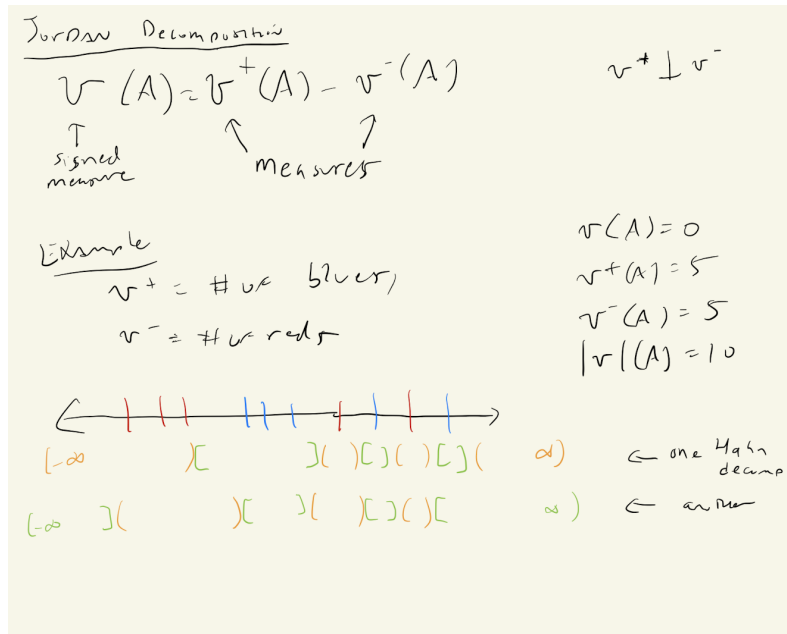 Jordan Decomposition
ν(A) = ν⁺(A) - ν⁻(A)
ν⁺ ⊥ ν⁻
↑ ↖ ↗
signed measure
measures
Example
ν⁺ = # of blues,
ν⁻ = # of reds
ν(A) = 0
ν⁺(A) = 5
ν⁻(A) = 5
|ν|(A) = 10
(-∞ )[ ]( )[ ]( )[ ]( ∞) ← one Hahn decomp
(-∞ ]( )[ ]( )[ ]( )[ ∞) ← another